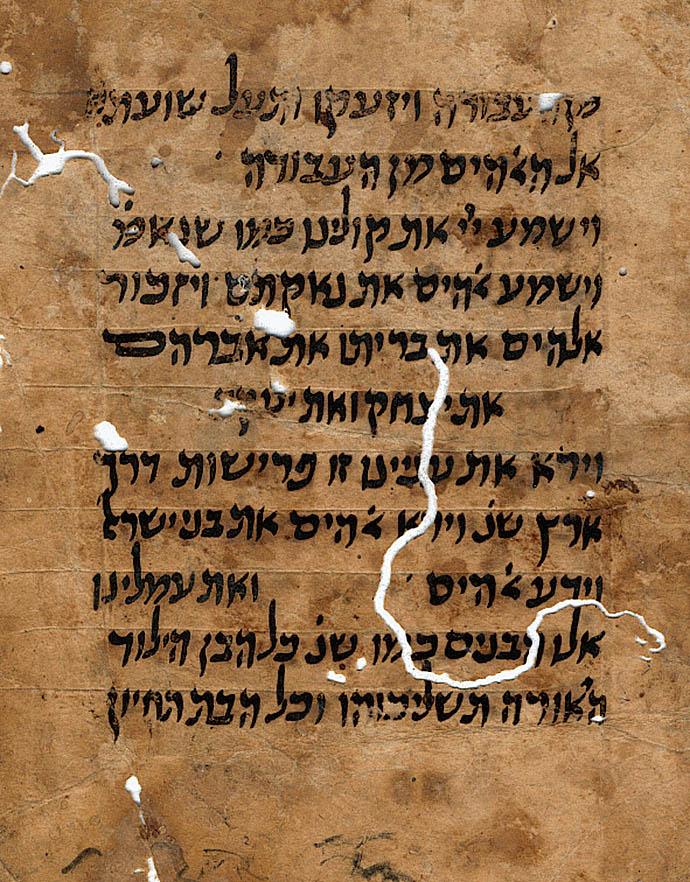 מן העבודה ויזעקו ותעל שועתם
אל הﭏהים מן העבודה
וישמע ייי את קולינו כמו שנאמ'
וישמע ﭏהים את נאקתם ויזכור
אלהים את בריתו את אברהם
את יצחק ואת יעקב
וירא את ענינו זו פרישות דרך
ארץ שנ' וירא ﭏהים את בני ישרל
וידע ﭏהים ואת עמלינו
אלו הבנים כמו שנ' כל הבן הילוד
היאורה תשליכוהו וכל הבת תחיון